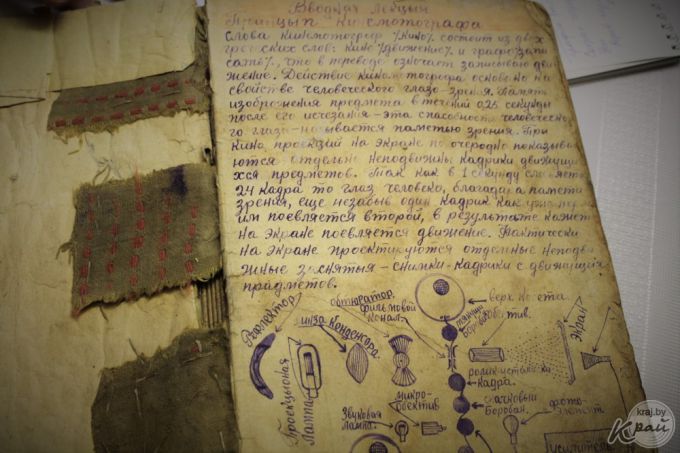 Вводная Лекция
Принцып кинемотографа
Слова Кинемотограф /Кино/ состоит из двух
греческих слов: кино /движение/ и графо/запи
сать/, что в переводе означает записываю дви
жение. Действие кинемотогрофа основоно на
свойстве человеческого глаза-зрения. Память
изоброжения предмета в течении 0,25 секунды
после его исчезания-эта способность человеческо
го глаза-называется паметью зрения. При
Кино проэкций на экране по очередно показыва
ются отдельно неподвижны кадрики движущи
хся предметов. Так как в 1 секунду
24 кадра то глаз человека, благодаря памети
зрения, еще незабыв один кадрик как уже
им поевляется второй, в результате кажет
на экране поевляется движение. Фактически
на экране проектируются отдельные неподви
жные заснятыя-снимки-кадрики с движущихся
прадметов.
Рефлектор
Проекцыоная
лампа
линза Конденсора
обтюратор
фильмовой
конал.
микро-
обектив
Звуковая
лампа
верх. касета.
экран
ролик установки
кадра.
скачковый
борабан.
фото-
элемент
усилитель
kraj.by
Край